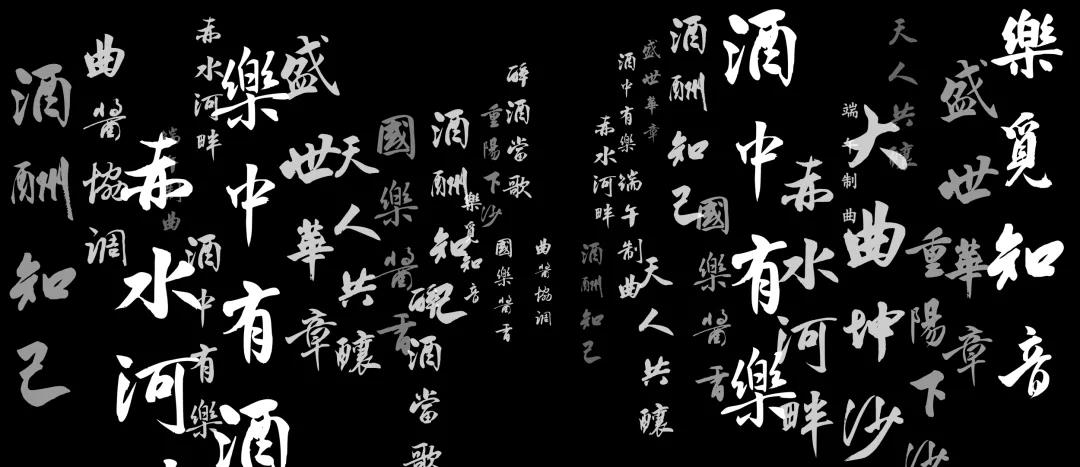 樂覓知音
盛世華章
重陽下沙
天人共釀
大曲坤沙
端午制曲
赤水河畔
酒中有樂
國樂醬香
酒酬知己
天人共釀
盛世華章
酒中有樂
端午制曲
赤水河畔
酒酬知己
曲醬協调
醉酒當歌
國樂醬香
重陽下沙
樂覓知音
酒酬知己
醉酒當歌
國樂醬香
天人共釀
盛世華章
樂中有酒
赤水河畔
酒中有樂
赤水河
曲醬協调
酒酬知己